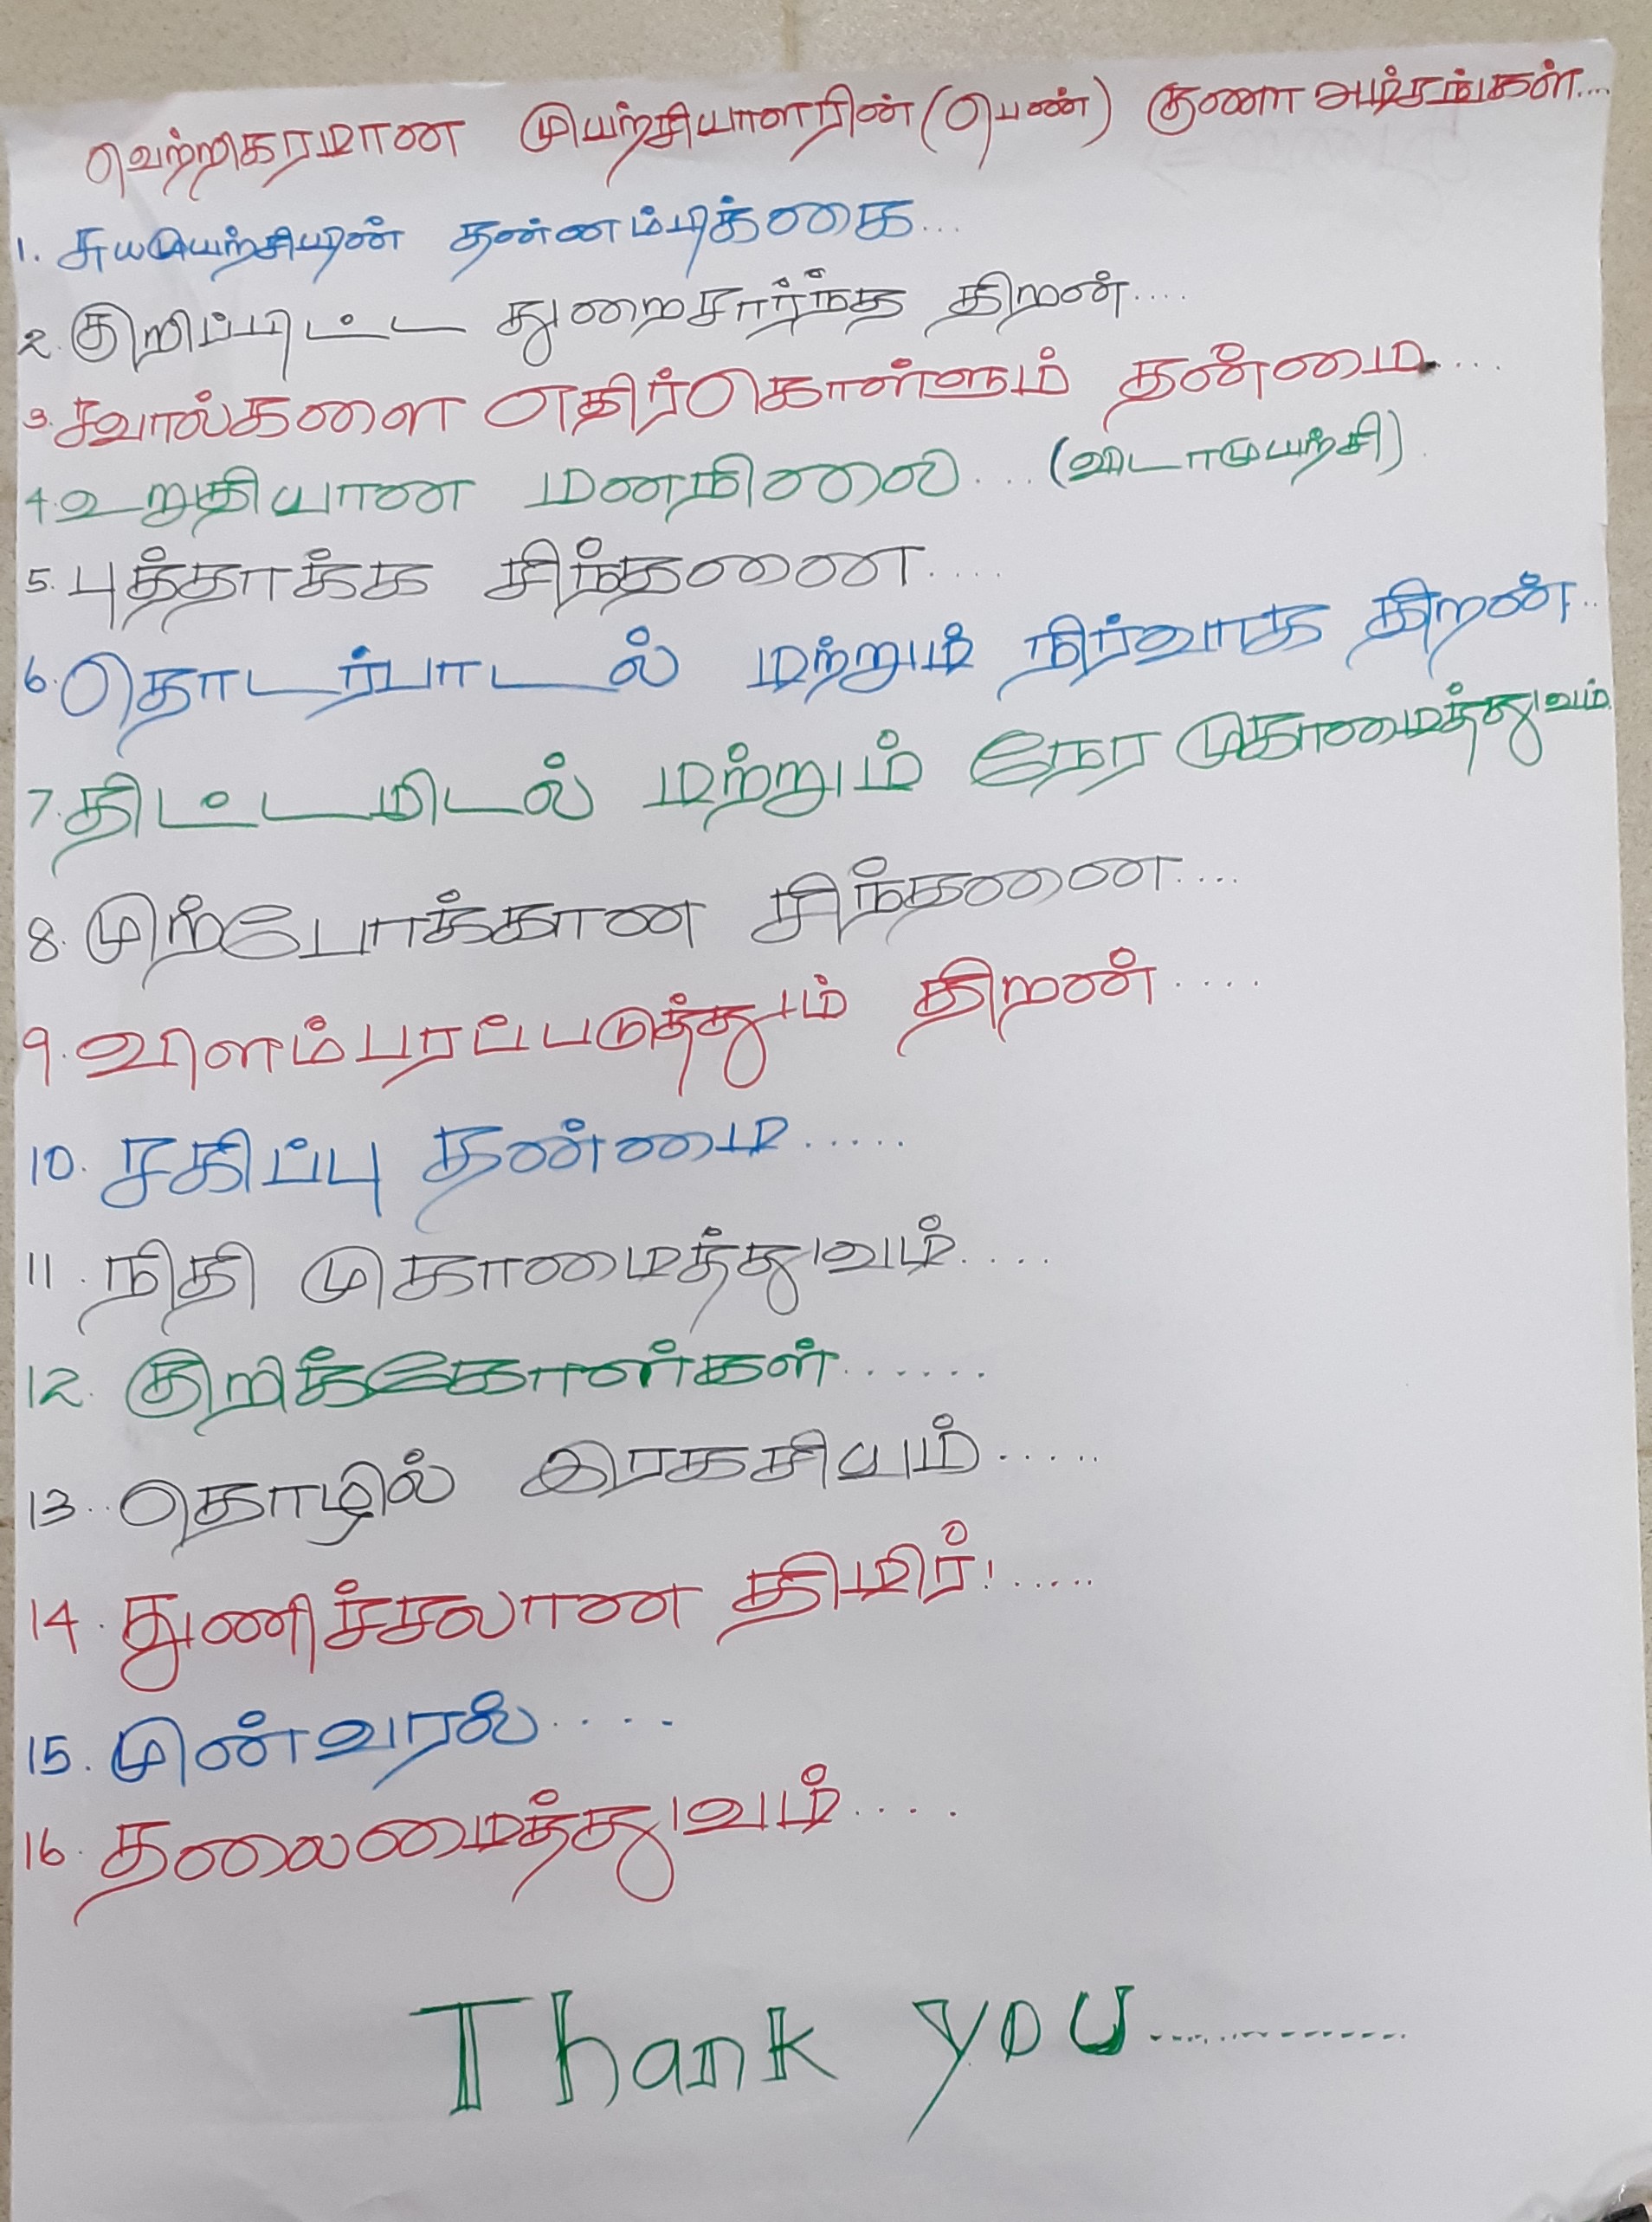 வெற்றிகரமான முயற்சியாளரின் (பெண்) குணா அம்சங்கள்...
1. சுயமுயற்சியின் தன்னம்பிக்கை...
2. குறிப்பிட்ட துறைசார்ந்த திறன்....
3. சவால்களை எதிர்கொள்ளும் தன்மை....
4. உறுதியான மனநிலை.... (விடாமுயற்சி)
5. புத்தாக்க சிந்தனை....
6. தொடர்பாடல் மற்றும் நிர்வாக திறன்..
7. திட்டமிடல் மற்றும் நேர முகாமைத்துவம்
8. முற்போக்கான சிந்தனை....
9. விளம்பரப்படுத்தும் திறன்....
10. சகிப்பு தன்மை.....
11. நிதி முகாமைத்துவம்....
12. குறிக்கோள்கள்......
13. தொழில் இரகசியம்.....
14. துணிச்சலான திமிர்!.....
15. முன்வரல்....
16. தலைமைத்துவம்....
Thank you..............